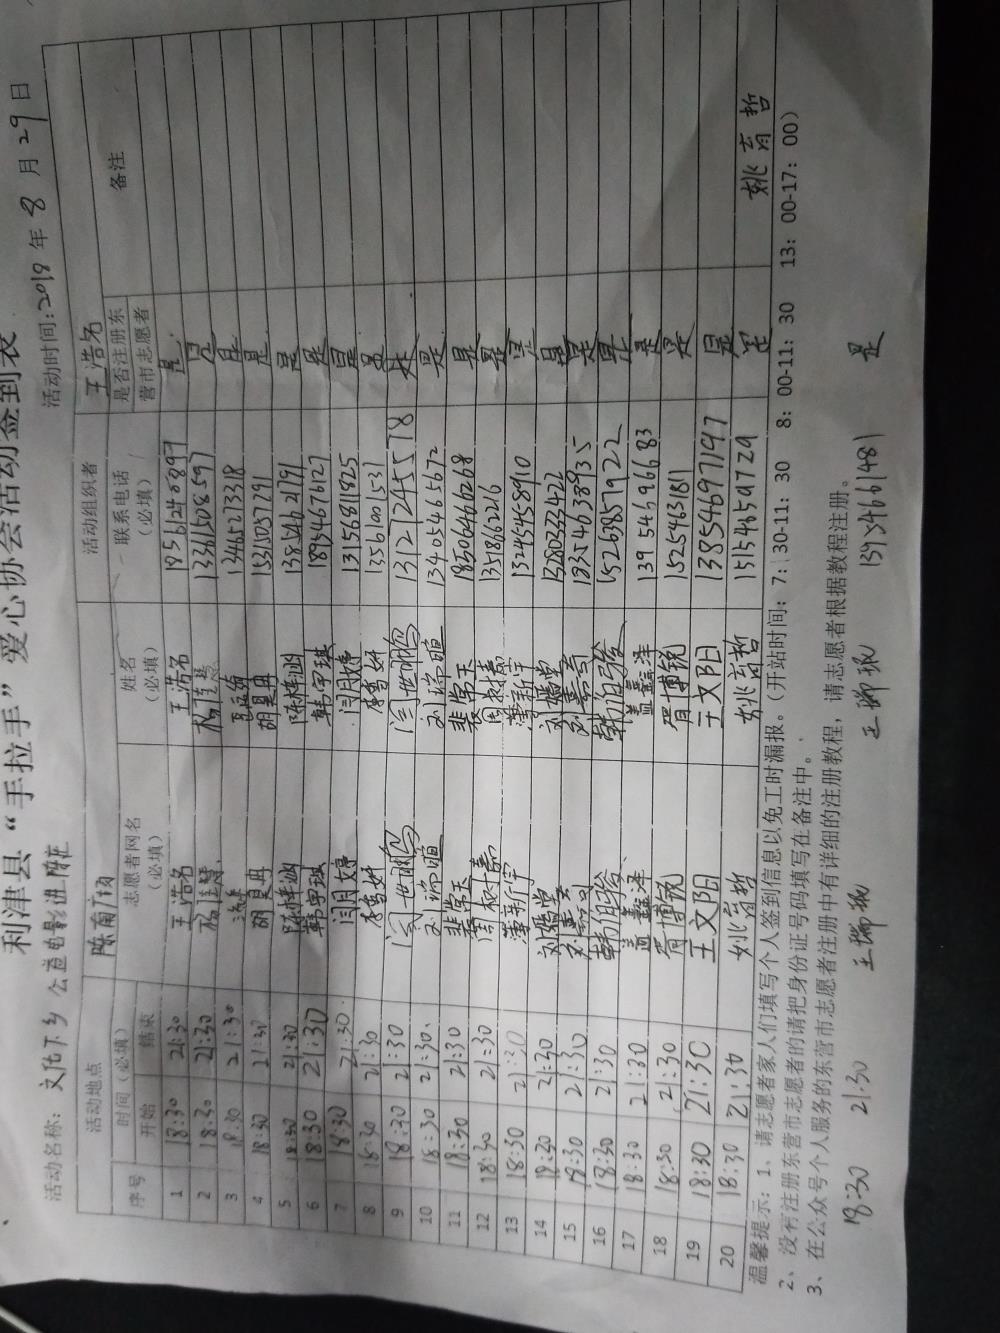 利津县“手拉手”爱心协会活动签到表
活动名称: 文化下乡 公益电影进 活动时间:2019年8月29日
活动地点 陈南广场 活动组织者 王浩名
序号 时间(必填) 开始 结束 志愿者网名(必填) 姓名(必填) 联系电话(必填) 是否注册东营市志愿者 备注
1 18:30 21:30 王浩名 王浩名 18561240897 是
2 18:30 21:30 13361508597 是
3 18:30 21:30 是
4 18:30 21:30 胡昊冉 胡昊冉 15315057291 是
5 18:30 21:30 陈梓涵 陈梓涵 13854621791 是
6 18:30 21:30 韩宇琪 韩宇琪 18954676127 是
7 18:30 21:30 闫月婷 闫月婷 13156811825 是
8 18:30 21:30 李雪妍 李雪妍 13561001531 是
9 18:30 21:30 闫世鹏 闫世鹏 13127245578
10 18:30 21:30 刘瑞暄 刘瑞暄 13405465672 是
11 18:30 21:30 裴常天 裴常天 18506466268 是
12 18:30 21:30 周叔嘉 周叔嘉 是
13 18:30 21:30 薄新宇 薄新宇 13454458910 是
14 18:30 21:30 是
15 18:30 21:30 18354638935 是
16 18:30 21:30 15269857922 是
17 18:30 21:30 盖鑫洋 盖鑫洋 13954696683 是
18 18:30 21:30 胥博锐 胥博锐 15254631811 是
19 18:30 21:30 王文阳 王文阳 13854697197 是
20 18:30 21:30 姚育哲 姚育哲 15154859729 是 姚育哲
温馨提示: 1、请志愿者家人们填写个人签到信息以免工时漏报。(开站时间: 7: 30-11: 30 8: 00-11: 30 13: 00-17: 00)
2、没有注册东营市志愿者的请把身份证号码填写在备注中。
3、在公众号个人服务的东营市志愿者注册中有详细的注册教程, 请志愿者根据教程注册。
18:30 21:30 王瑞珉 王瑞珉 13734661481 是